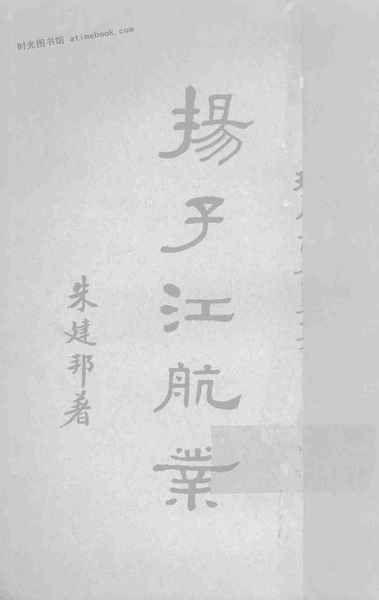 时光图书馆 atimebook.com
揚子江航業
朱建邦著